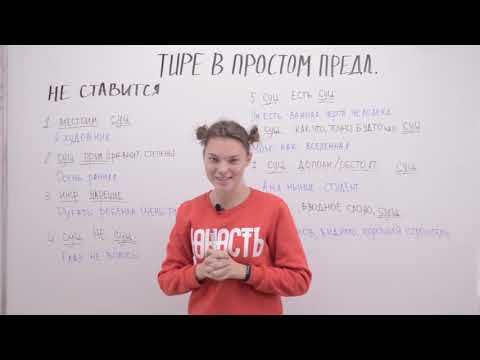 ТИРЕ В ПРОСТОМ ПРЕДЛ.
НЕ СТАВИТСЯ
1 МЕСТОИМ СУЩ
Я ХУДОЖНИК
2 СУЩ ПРИЛ
ОСЕНЬ РАННЯЯ
3 ИНФ НАРЕЧИЕ
РУГАТЬ РЕБЕНКА ОЧЕНЬ
4 СУЩ НЕ СУЩ
ГЛАЗ НЕ ВОЛОСЫ
5 СУЩ ЕСТЬ СУЩ
ЕСТЬ ВАЖНАЯ ЧЕРТА ЧЕЛОВЕКА
СУЩ КАК, ЧТО, ТОЧНО, БУДТО СУЩ
МОЗГ КАК ВСЕЛЕННАЯ
СУЩ ДОПОЛН/ОБСТОЯТ СУЩ
АНЯ НЫНЧЕ СТУДЕНТ
ВВОДНОЕ СЛОВО, СУЩ
ВИДИМО, ХОРОШИЙ СТРОИТЕЛЬ
ЮНОСТЬ